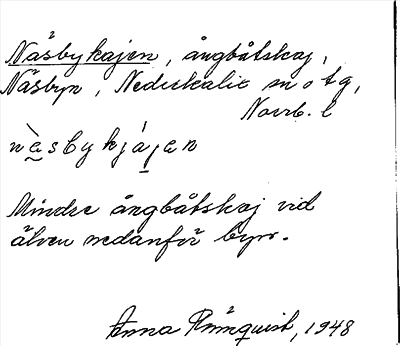 Näsbykajen, ångbåtskaj,
Näsbyn, Nederkalix m o t g,
Norrb. l
näsbykjájen
Mindre ångbåtskaj vid
älven nedanför byn.
Anna Rönnquist, 1948